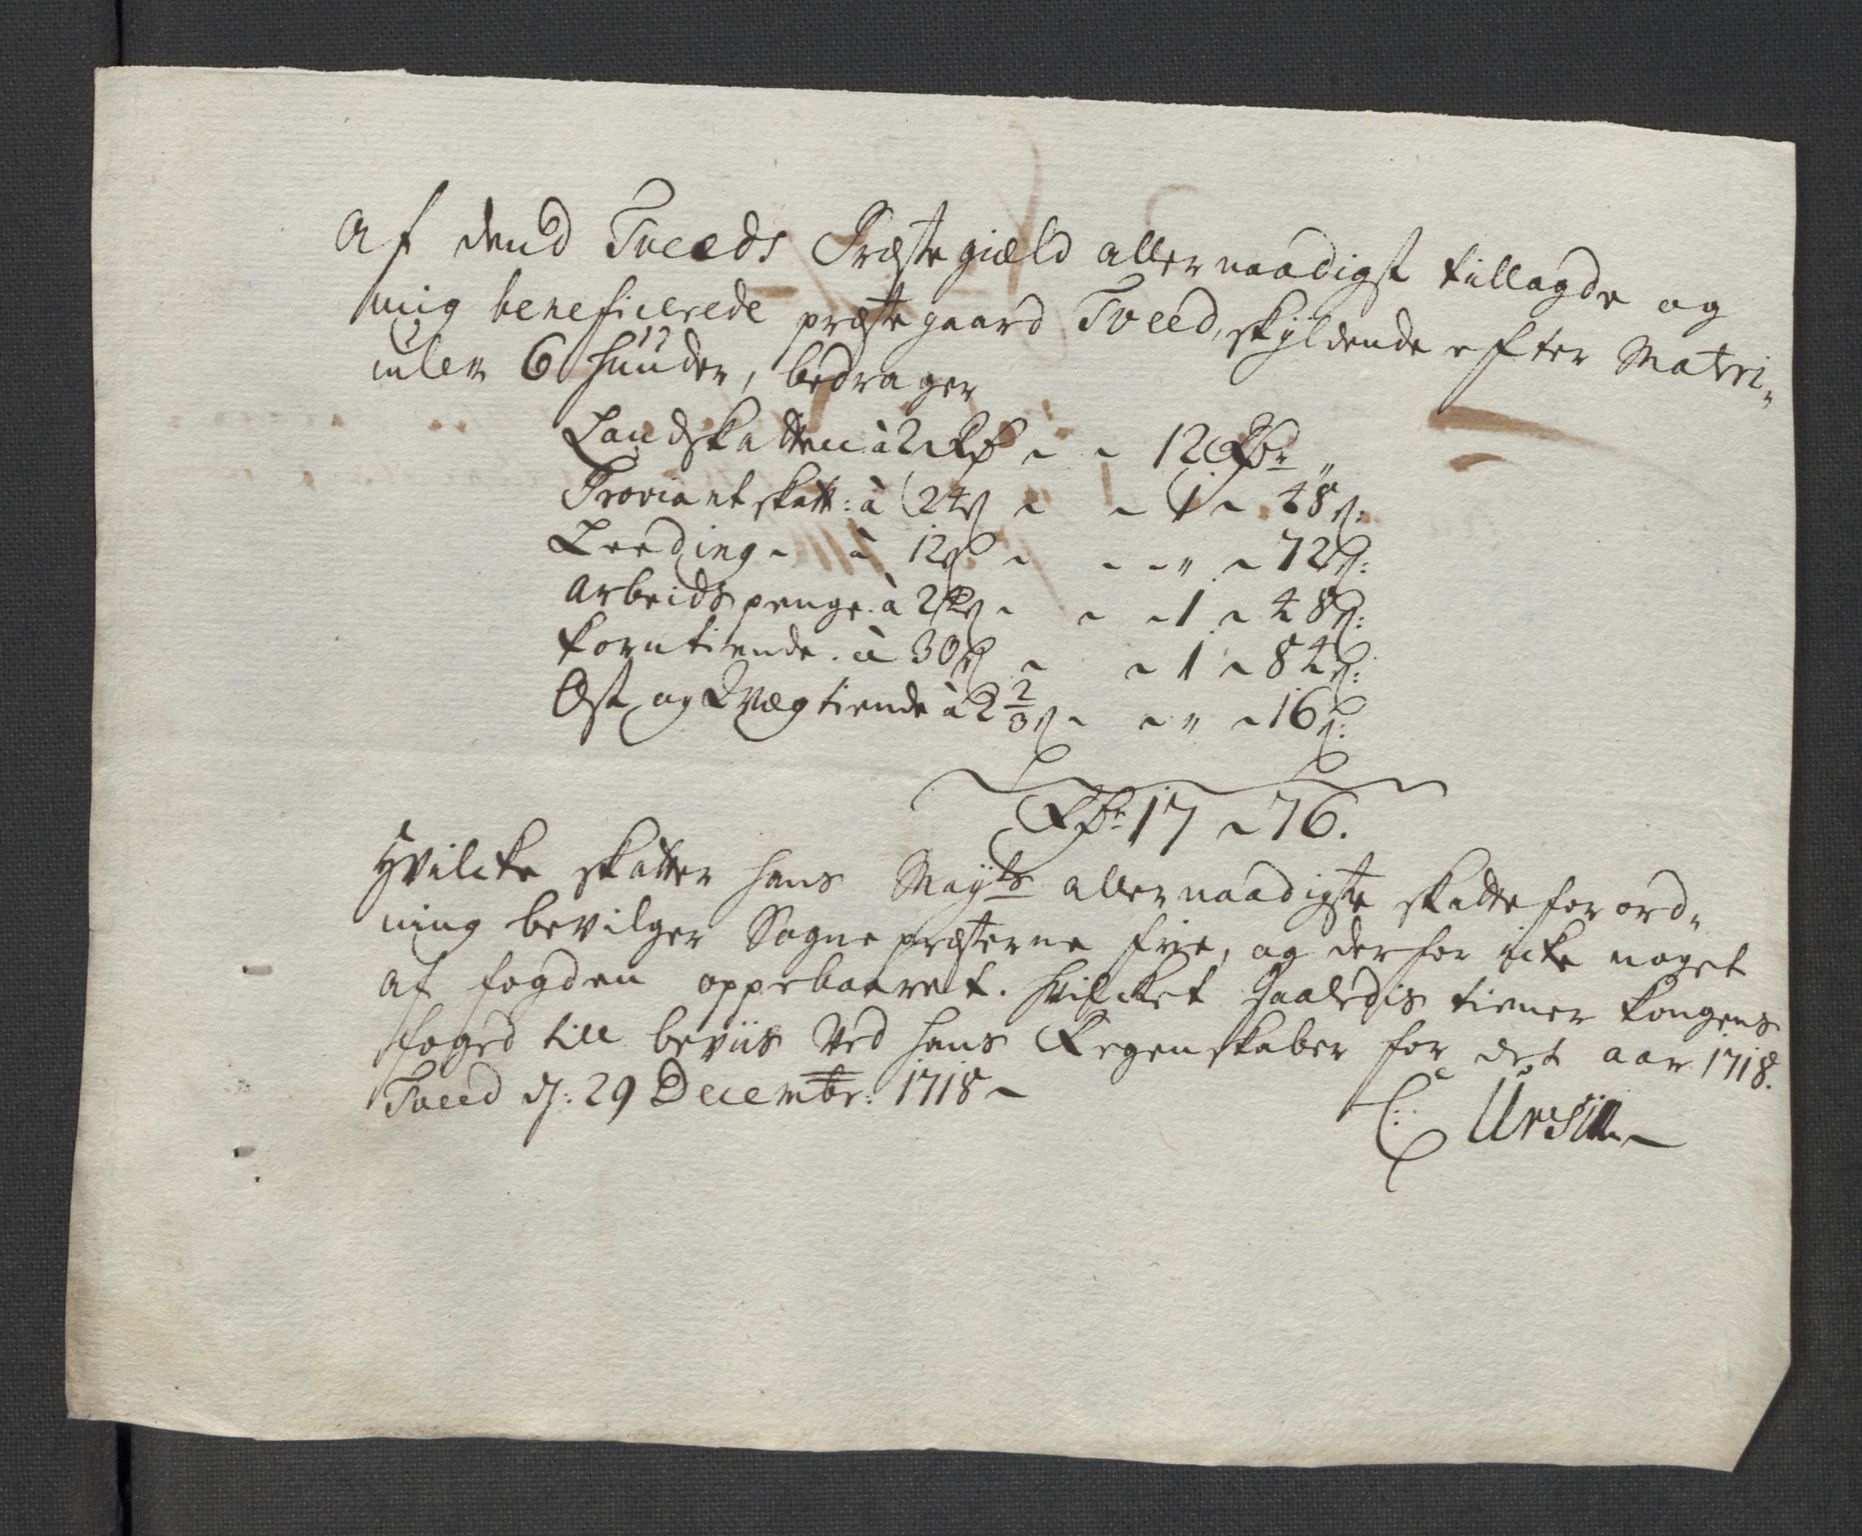 Af dend Tveeds Præstegiæld allernaadigst tillagde og
mig beneficerede præstegaard Tveed, skyldende efter Matri-
culen 6 huuder, bedrager
Landskatten à 2 Rd ~ ~ 12 Rdr „
Proviantskatt: à 24 s ~ ~ 1 ~ 48 s:
Leeding ~ à 12 s ~ ~ ~ „ ~ 72 s:
Arbeids penge. à 24 s ~ ~ ~ 1 ~ 48 s:
Korntiende. à 30 s ~ ~ 1 ~ 84 s:
Ost og Qvægtiende à 2 2/3 s ~ ~ „ ~ 16 s:
Rdr 17 ~ 76.
Hvilcke skatter hans Mayts allernaadigste skatteforord-
ning bevilger Sognepræsterne frie, og derfor icke noget
af fogden oppebaaret. Hvilcket saaledis tiener Kongens
foged till beviis ved hans Regenskaber for det aar 1718.
Tveed d: 29 Decembr: 1718 ~
C: Ursin ~